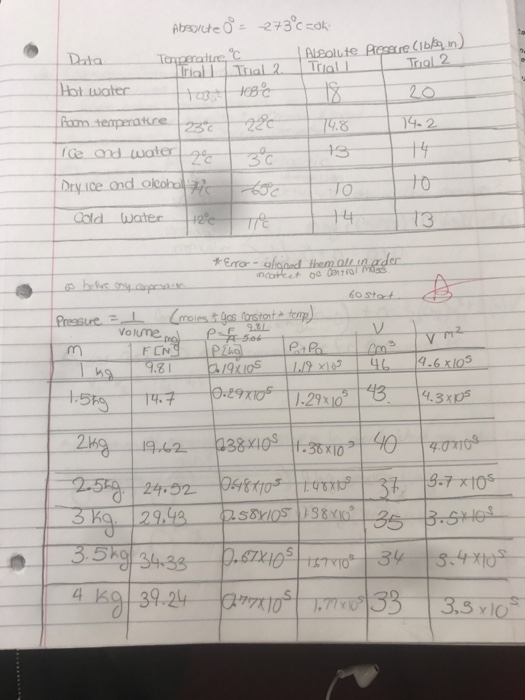 Absolute 0° = -273°C = 0k
Data Temperature °C Absolute Pressure (lb/sq in)
Trial 1 Trial 2 Trial 1 Trial 2
Hot water 103°C 18 20
Room temperature 23°C 22°C 14.8 14.2
Ice and water 2°C 3°C 13 14
Dry ice and alcohol 10 10
Cold water 12°C 11°C 14 13
*Error - aligned them all in order
incorrect
60 start
Pressure = 1 (moles * gas constant * temp)
Volume
P = F 9.81
A 5.06
m F(N) mg P P+Pa V cm³ V m²
1 kg 9.81 0.19x10⁵ 1.19 x10⁵ 46 4.6 x10⁵
1.5kg 14.7 0.29x10⁵ 1.29x10⁵ 43 4.3x10⁵
2kg 19.62 0.38x10⁵ 1.38x10⁵ 40 4.0x10⁵
2.5kg 24.52 0.48x10⁵ 1.48x10⁵ 37 3.7 x10⁵
3 kg 29.43 0.58x10⁵ 1.58x10⁵ 35 3.5x10⁵
3.5kg 34.33 0.67x10⁵ 1.67x10⁵ 34 3.4x10⁵
4 kg 39.24 0.77x10⁵ 1.77x10⁵ 33 3.3x10⁵